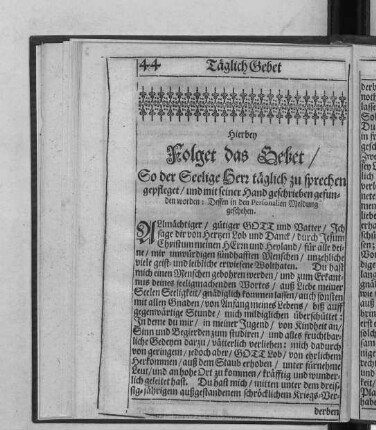 44 Täglich Gebet
Hierbey
Folget das Gebet /
So der Seelige Herr täglich zu sprechen
gepfleget / und mit seiner Hand geschrieben gefun-
den worden: Dessen in den Personalien Meldung
geschehen.
ALlmächtiger / gütiger GOTT und Vatter / Ich
sage dir von Hertzen Lob und Danck / durch Jesum
Christum meinen HErrn und Heyland / für alle dei-
ne / mir unwürdigen sündhafften Menschen / unzehliche
viele geist- und leibliche erwiesene Wolthaten. Du hast
mich einen Menschen gebohren werden / und zum Erkänt-
nus deines seeligmachenden Wortes / auß Liebe meiner
Seelen Seeligkeit / gnädiglich kommen lassen / auch sonsten
mit allen Gnaden / von Anfang meines Lebens / biß auff
gegenwärtige Stunde / mich mildiglichen überschüttet:
In deme du mir / in meiner Jugend / von Kindheit an /
Sinn und Begierden zum studiren / und alles fruchtbar-
liche Gedeyen darzu / vätterlich verliehen: mich dadurch
von geringem / jedoch aber / GOTT Lob / von ehrlichem
Herkommen / auß dem Staub erhoben / unter fürnehme
Leut / und an hohe Ort zu kommen / kräfftig und wunder-
lich geleitet hast. Du hast mich / mitten unter dem dreis-
sig-jährigem außgestandenem schröcklichem Kriegs-Ver-
derben